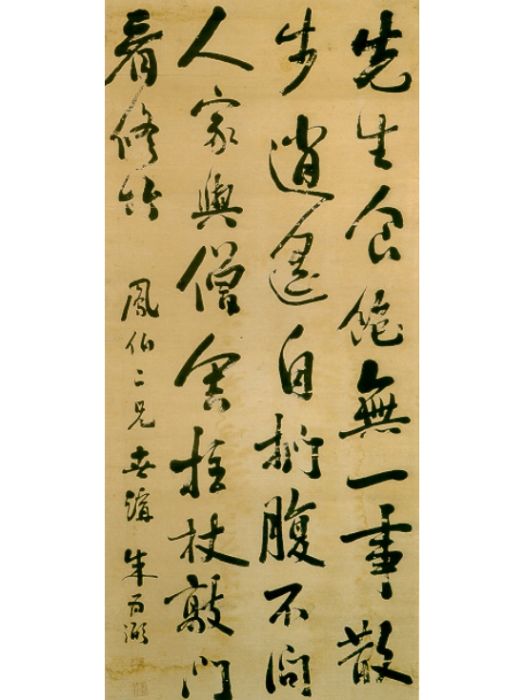 先生食飽無一事散
步逍遙自捫腹不問
人家與僧舍拄杖敲門
看修竹
鳳伯二兄
朱為弼